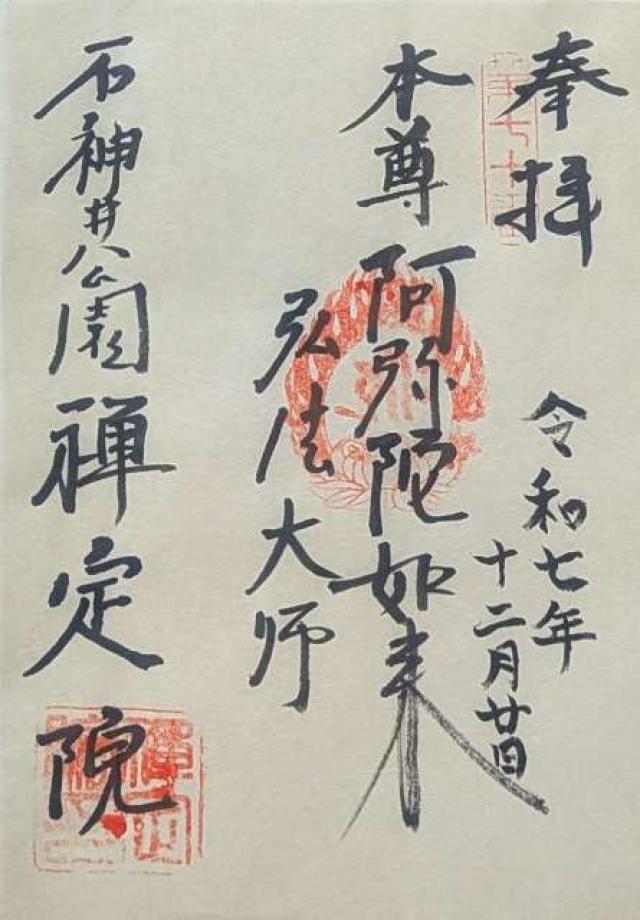 奉拝
令和七年
十二月廿日
本尊 阿弥陀如来
弘法大师
石神井公園 禅定院